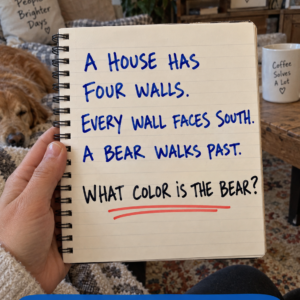 Brighter
Days
A HOUSE HAS
FOUR WALLS.
EVERY WALL FACES SOUTH.
A BEAR WALKS PAST.
WHAT COLOR IS THE BEAR?
Coffee
Solves
A Lot